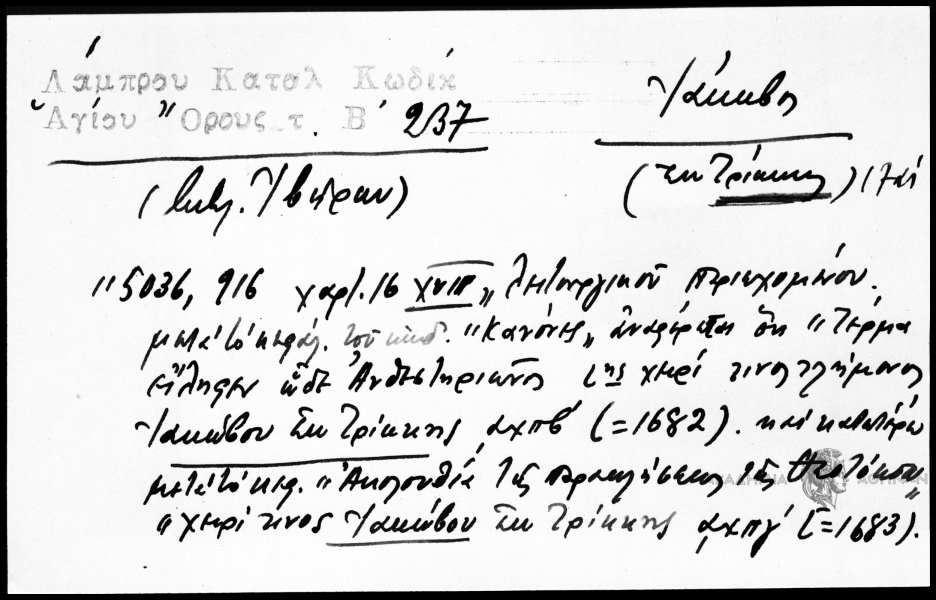 Λάμπρου Καταλ Κωδίκ
Ἁγίου Ὄρους τ. Β΄ 237
(Βιβλ. Ἰβήρων)
Ἰάκωβος
(ἐκ Τρίκκης) 17 αἰ
"5036, 916 χαρτ. 16 XVII „ λειτουργικοῦ περιεχομένου.
μετὰ τὸ κεφάλ. τοῦ κωδ. "Κανόνες„ ἀναφέρεται ὅτι "Τέρμα
εἴληφεν ὧδε Ἀνθεστηριῶνος ςης χειρί τινος τλήμονος
Ἰακώβου ἐκ Τρίκκης ͵αχπβ΄ (=1682). καὶ κατωτέρω
μετὰ τὸ κεφ. "Ἀκολουθία τῆς παρακλήσεως τῆς Θεοτόκου"
"χειρί τινος Ἰακώβου ἐκ Τρίκκης ͵αχπγ΄ (=1683).
ΑΘΗΝΩΝ